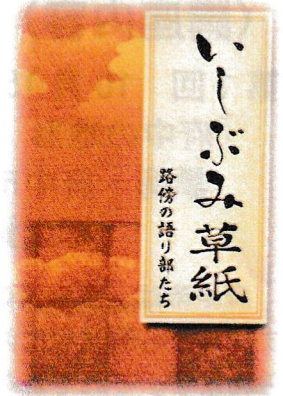 いしぶみ草紙
路傍の語り部たち